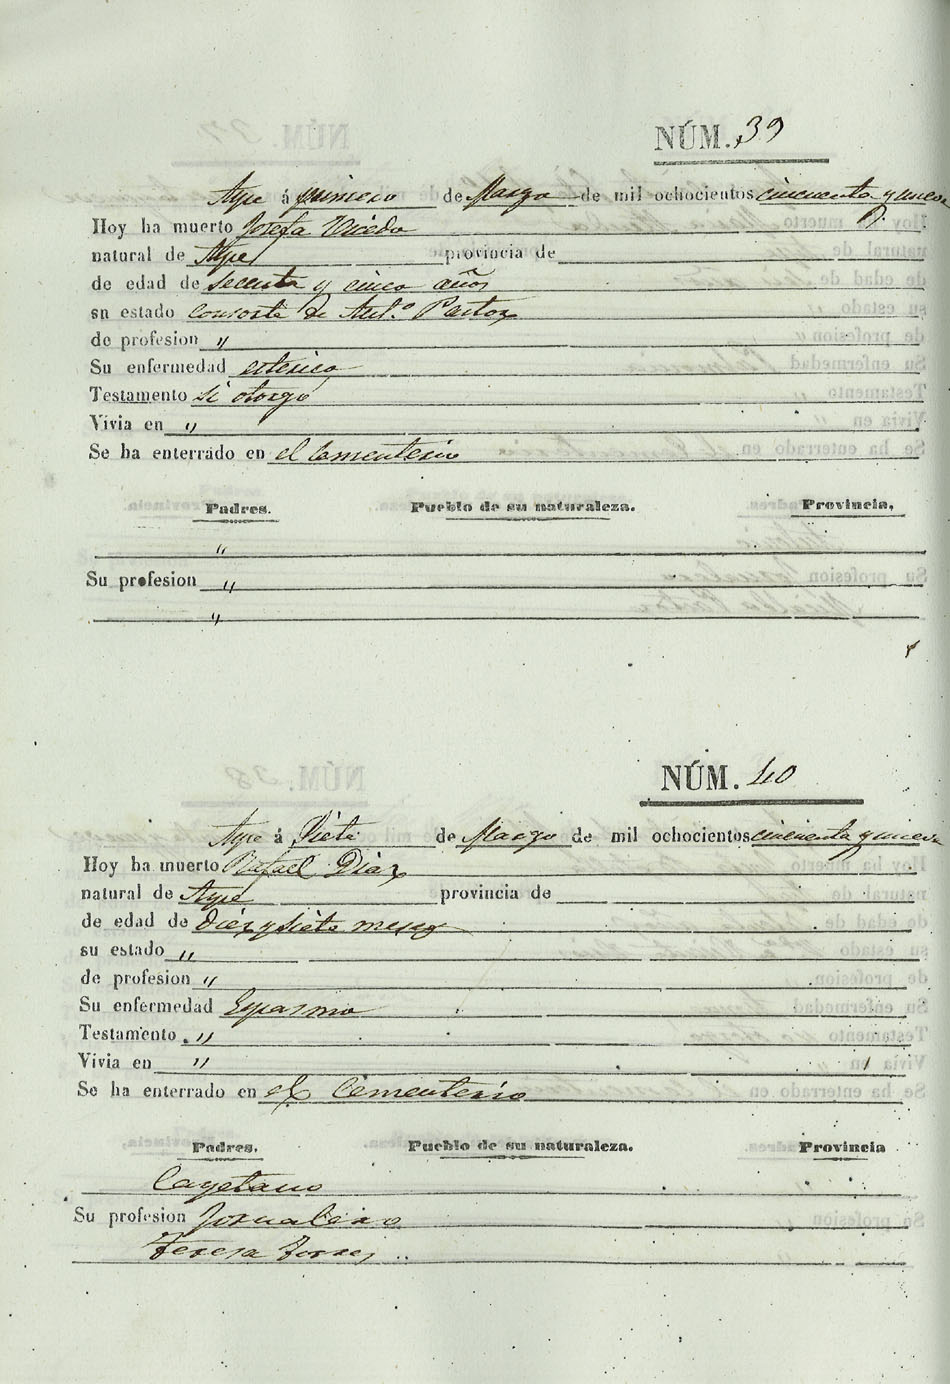 NÚM. 39
Aspe á primero de Marzo de mil ochocientos cincuenta y nueve
Hoy ha muerto Josefa Vicedo
natural de Aspe provincia de
de edad de secenta y cinco años
sn estado Consorte de Ant.º Pastor
de profesion "
Su enfermedad
Testamento si otorgó
Vivia en "
Se ha enterrado en el Cementerio
Padres. Pueblo de su naturaleza. Provincia.
"
Su profesion "
"
NÚM. 40
Aspe á Siete de Marzo de mil ochocientos cincuenta y nueve
Hoy ha muerto Rafael Diaz
natural de Aspe provincia de
de edad de diez y siete meses
su estado "
de profesion "
Su enfermedad Espasmo
Testamento "
Vivia en "
Se ha enterrado en el Cementerio
Padres. Pueblo de su naturaleza. Provincia
Cayetano
Su profesion Jornalero
Teresa Torres